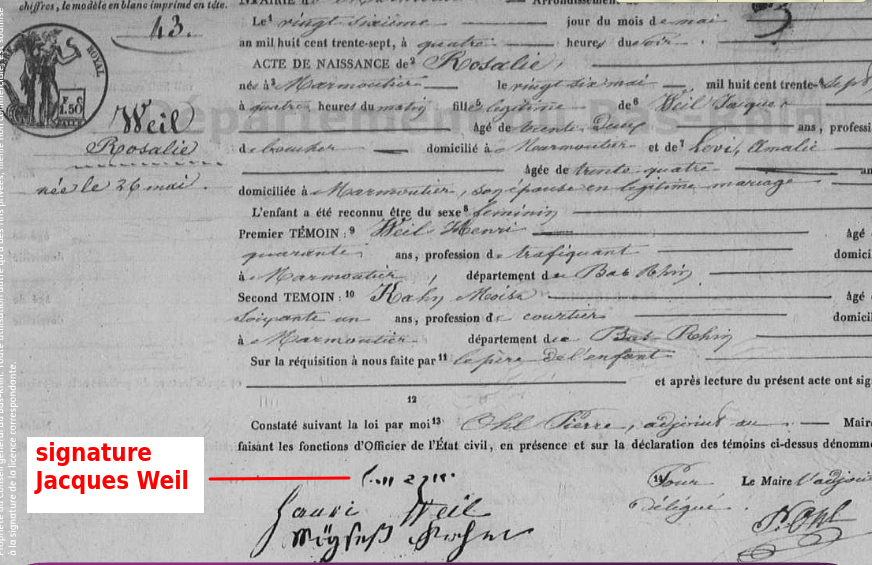 chiffres, le modèle en blanc imprimé en tête.
43.
ROYAL
1.50
Weil
Rosalie
née le 26 mai.
Le vingt sixième jour du mois de mai
an mil huit cent trente-sept, à quatre heures du soir.
ACTE DE NAISSANCE de Rosalie,
née à Marmoutier le vingt six mai mil huit cent trente-sept
à quatre heures du matin fille légitime de Weil Jacques
âgé de trente deux ans, professi
de boucher domicilié à Marmoutier et de Levi, Amalie
âgée de trente quatre an
domiciliée à Marmoutier, son épouse en légitime mariage
L'enfant a été reconnu être du sexe féminin
Premier TÉMOIN : Weil Henri âgé
quarante ans, profession de trafiquant domici
à Marmoutier, département du Bas Rhin
Second TEMOIN : Kahn Moïse âgé
soixante un ans, profession de courtier domicil
à Marmoutier département du Bas-Rhin
Sur la réquisition à nous faite par le père de l'enfant
et après lecture du présent acte ont sig
12
Constaté suivant la loi par moi Ohl Pierre, adjoint au Maire
faisant les fonctions d'Officier de l'État civil, en présence et sur la déclaration des témoins ci-dessus dénomm
signature
Jacques Weil
Pour Le Maire l'adjoin
délégué.
Hauri Weil
P. Ohl
à la signature de la licence correspondante.